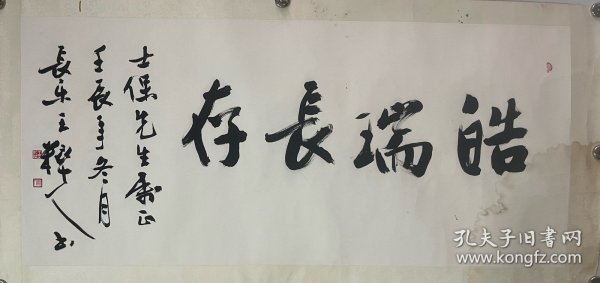 皓瑞長存
士保先生屬正
壬辰年冬月
長乐王人书
孔夫子旧書网
www.kongfz.com